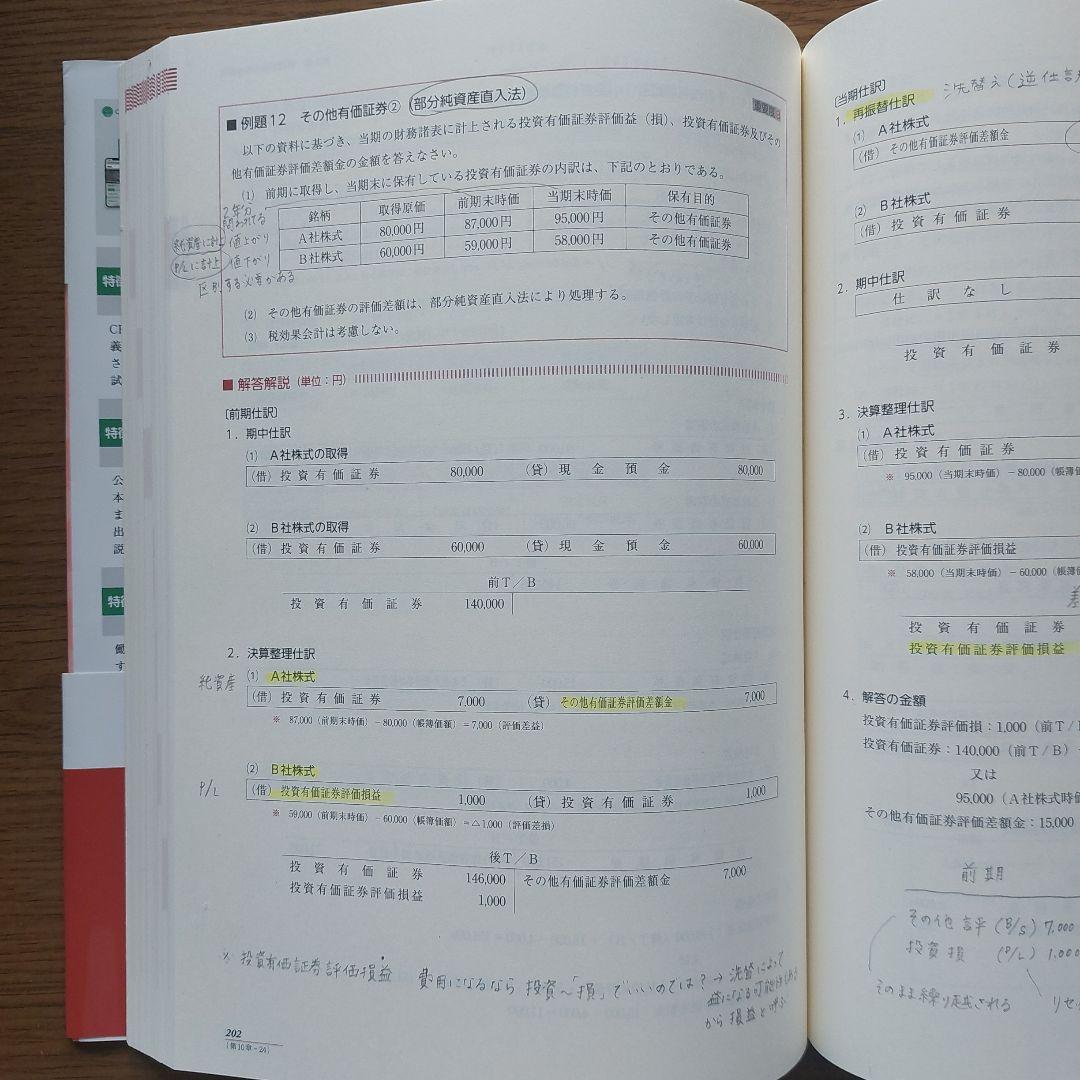 ■ 例題12 その他有価証券② (部分純資産直入法)
以下の資料に基づき、当期の財務諸表に計上される投資有価証券評価益（損）、投資有価証券及びその
他有価証券評価差額金の金額を答えなさい。
(1) 前期に取得し、当期末に保有している投資有価証券の内訳は、下記のとおりである。
銘柄 取得原価 前期末時価 当期末時価 保有目的
A社株式 80,000円 87,000円 95,000円 その他有価証券
B社株式 60,000円 59,000円 58,000円 その他有価証券
2年分
問われてる
純資産に計上 値上がり
P/Lに計上 値下がり
区別する必要がある
(2) その他有価証券の評価差額は、部分純資産直入法により処理する。
(3) 税効果会計は考慮しない。
■ 解答解説（単位：円）
〔前期仕訳〕
1．期中仕訳
(1) A社株式の取得
（借）投資有価証券 80,000 （貸）現金預金 80,000
(2) B社株式の取得
（借）投資有価証券 60,000 （貸）現金預金 60,000
前T／B
投資有価証券 140,000
2．決算整理仕訳
(1) A社株式
純資産
（借）投資有価証券 7,000 （貸）その他有価証券評価差額金 7,000
※ 87,000（前期末時価）－80,000（帳簿価額）＝7,000（評価差益）
(2) B社株式
P/L
（借）投資有価証券評価損益 1,000 （貸）投資有価証券 1,000
※ 59,000（前期末時価）－60,000（帳簿価額）＝△1,000（評価差損）
後T／B
投資有価証券 146,000 その他有価証券評価差額金 7,000
投資有価証券評価損益 1,000
※ 投資有価証券評価損益 費用になるなら投資〜損」でいいのでは？→洗替によって
益になる可能性もある
から損益と呼ぶ
202
（第10章－24）
〔当期仕訳〕 洗替え（逆仕訳
1．再振替仕訳
(1) A社株式
（借）その他有価証券評価差額金
(2) B社株式
（借）投資有価証券
2．期中仕訳
仕訳なし
投資有価証券
3．決算整理仕訳
(1) A社株式
（借）投資有価証券
※ 95,000（当期末時価）－80,000（帳簿価
(2) B社株式
（借）投資有価証券評価損益
※ 58,000（当期末時価）－60,000（帳簿価
投資有価証券
投資有価証券評価損益
4．解答の金額
投資有価証券評価損：1,000（前T／B
投資有価証券：140,000（前T／B）
又は
95,000（A社株式時価
その他有価証券評価差額金：15,000
前期
その他評(B/S) 7,000
投資損 (P/L) 1,000
そのまま繰り越される リセ
特徴
CP
義
さ
試
特徴
公
本
ま
出
説
特徴
働
す